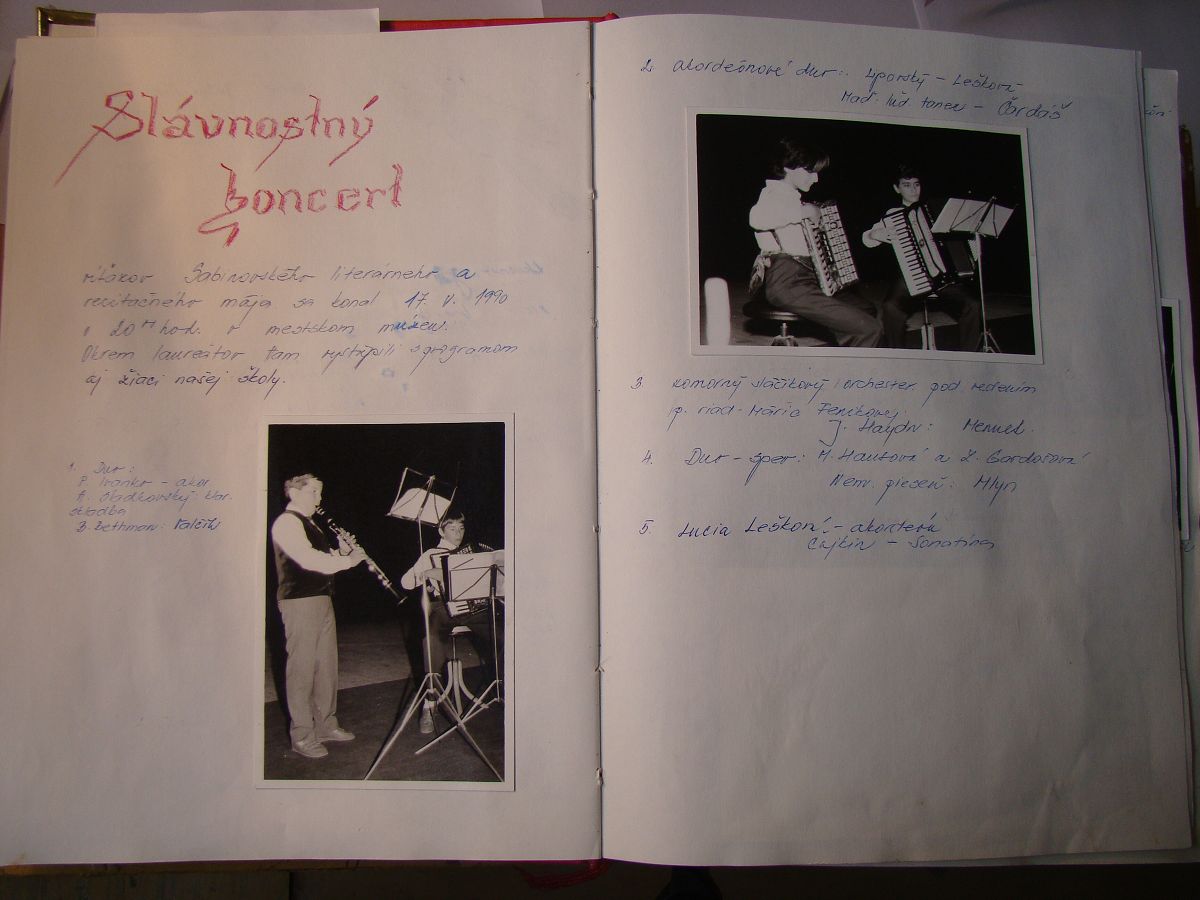 Slávnostný
koncert
víťazov Sabinovského literárneho a
recitačného mája sa konal 17. V. 1990
o 20 hod. v mestskom múzeu.
Okrem laureátov tam vystúpili s programom
aj žiaci našej školy.
1. Duo:
P. Ivanko - akor.
A. Sladkovský: klar.
skladba
B. Bethman: Valčík
2. akordeónové duo: Lporský - Lešková
Maď. ľud. tanec - Čardáš
3. Komorný sláčikový orchester pod vedením
p. riad. Márie Feničovej.
J. Haydn: Menuet.
4. Duo - spev: M. Hautová a Z. Gardošová
Nem. pieseň: Mlyn
5. Lucia Lešková - akordeón
Čajkin - Sonatína